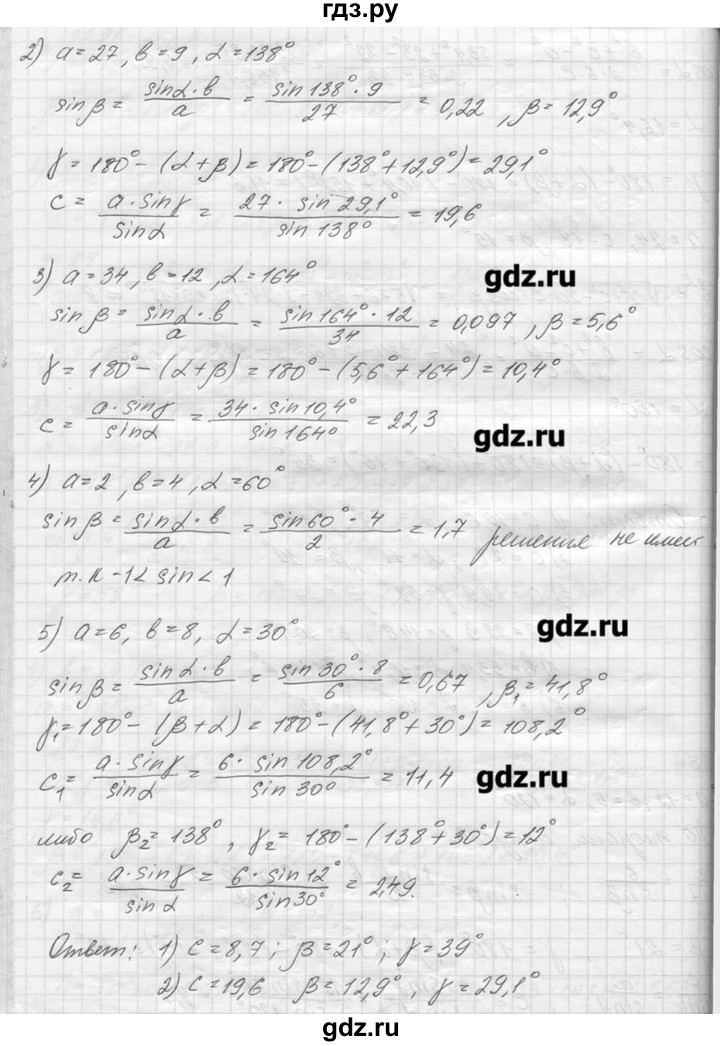 гдз.ру
2) a=27, в=9, α=138°
sinβ = sinα·в / a = sin138°·9 / 27 = 0,22, β=12,9°
γ=180°-(α+β)=180°-(138°+12,9°)=29,1°
c= a·sinγ / sinα = 27·sin29,1° / sin138° = 19,6
3) a=34, в=12, α=164°
gdz.ru
sinβ= sinα·в / a = sin164°·12 / 34 = 0,097, β=5,6°
γ=180°-(α+β)=180°-(5,6°+164°)=10,4°
c= a·sinγ / sinα = 34·sin10,4° / sin164° = 22,3
gdz.ru
4) a=2, в=4, α=60°
sinβ= sinα·в / a = sin60°·4 / 2 = 1,7 решения не имеет
т.к -1< sin< 1
5) a=6, в=8, α=30°
gdz.ru
sinβ= sinα·в / a = sin30°·8 / 6 = 0,67, β₁=41,8°
γ₁=180°-(β+α)=180°-(41,8°+30°)=108,2°
c₁= a·sinγ / sinα = 6·sin108,2° / sin30° = 11,4
gdz.ru
либо β₂=138°, γ₂= 180°-(138°+30°)=12°
c₂= a·sinγ / sinα = 6·sin12° / sin30° = 2,49.
Ответ: 1) c=8,7; β=21°; γ=39°
2) c=19,6 β=12,9°, γ=29,1°
gdz.ru